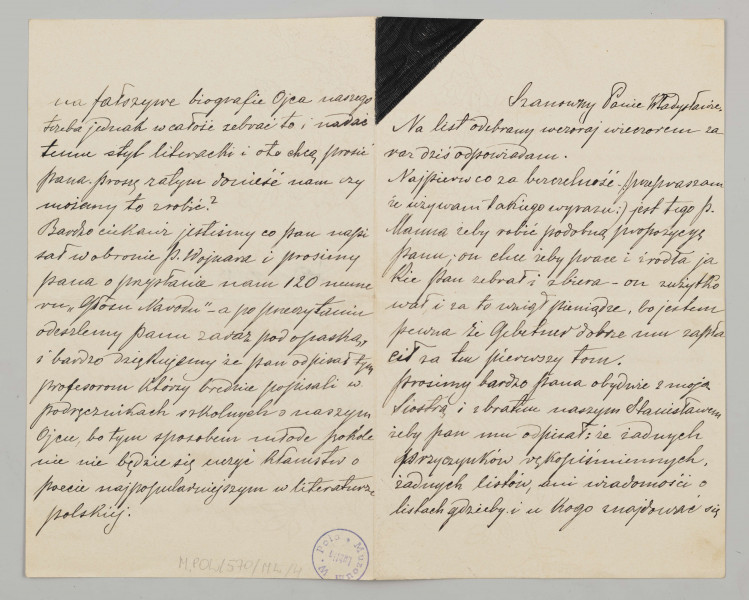 Szanowny Panie Władysławie.
Na list odebrany wczoraj wieczorem za
raz dziś odpowiadam.
Najpierw co za bezczelność - (przepraszam
że używam takiego wyrazu:) jest tego p.
Manna żeby robić podobną propozycyę
panu; on chce żeby prace i źrodła ja
kie pan zebrał i zbiera - on zużytko
wał i za to wziął pieniądze, bo jestem
pewna że Gebetner dobrze mu zapła
cił za ten pierwszy tom.
prosimy bardzo pana obydwie z moją
siostrą i z bratem naszym Stanisławem
żeby pan mu odpisał, że żadnych
przyczynków rękopiśmiennych,
żadnych listów, ani wiadomości o
listach gdzieby i u kogo znajdować się
na fałszywe biografie Ojca naszego
trzeba jednak w całość zebrać to i nadać
temu styl literacki i oto chcą prosić
pana. proszę zatym donieść nam czy
możemy to zrobić?
Bardzo ciekawi jesteśmy co pan napi
sał w obronie p. Wojnara i prosimy
pana o przysłanie nam 120 nume
ru „Głosu Narodu" - a po przeczytaniu
odeszlemy panu zaraz pod opaską,
i bardzo dziękujemy że pan odpisał tym
profesorom którzy brednie popisali w
podręcznikach szkolnych o naszym
Ojcu, bo tym sposobem młode pokole
nie nie będzie się uczyć kłamstw o
poecie najpopularniejszym w literaturze
polskiej.
M.POL/570/ML/4